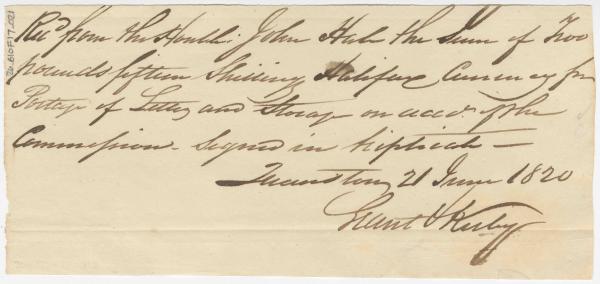 Recd from the Honble. John Hale the Sum of Two
pounds fifteen Shillings Halifax Currency for
Postage of Letters and Storage on acct. of the
Commission. Signed in triplicate —
21 June 1820
Grant & Kerby
26.810F17_021